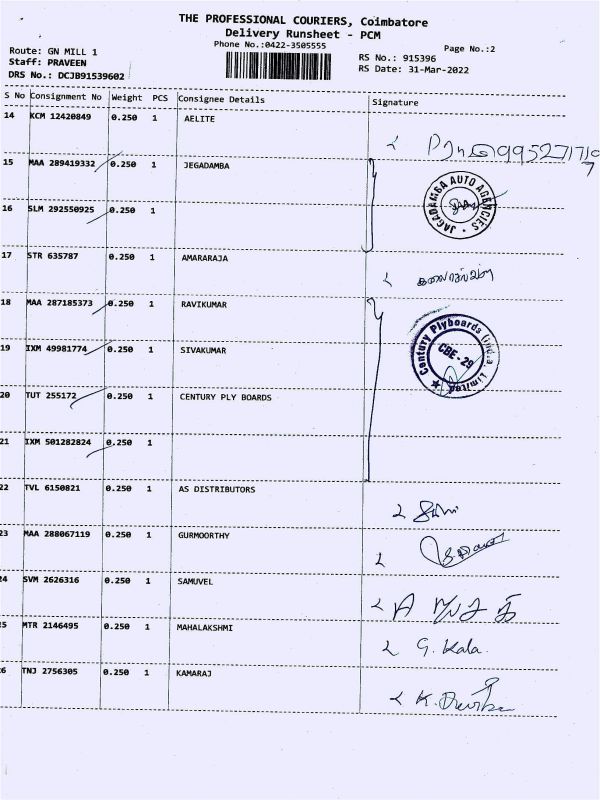 THE PROFESSIONAL COURIERS, Coimbatore
Delivery Runsheet - PCM
Phone No.:0422-3505555
Page No.:2
Route: GN MILL 1
Staff: PRAVEEN
DRS No.: DCJB91539602
RS No.: 915396
RS Date: 31-Mar-2022
S No Consignment No Weight PCS Consignee Details Signature
14 KCM 12420849 0.250 1 AELITE
15 MAA 289419332 0.250 1 JEGADAMBA
JAGADAMBA AUTO AGENCIES
16 SLM 292550925 0.250 1
17 STR 635787 0.250 1 AMARARAJA
18 MAA 287185373 0.250 1 RAVIKUMAR
19 IXM 49981774 0.250 1 SIVAKUMAR
Century Plyboards (India) Limited
CBE - 29
20 TUT 255172 0.250 1 CENTURY PLY BOARDS
21 IXM 501282824 0.250 1
22 TVL 6150821 0.250 1 AS DISTRIBUTORS
23 MAA 288067119 0.250 1 GURMOORTHY
24 SVM 2626316 0.250 1 SAMUVEL
25 MTR 2146495 0.250 1 MAHALAKSHMI G. Kala
26 TNJ 2756305 0.250 1 KAMARAJ